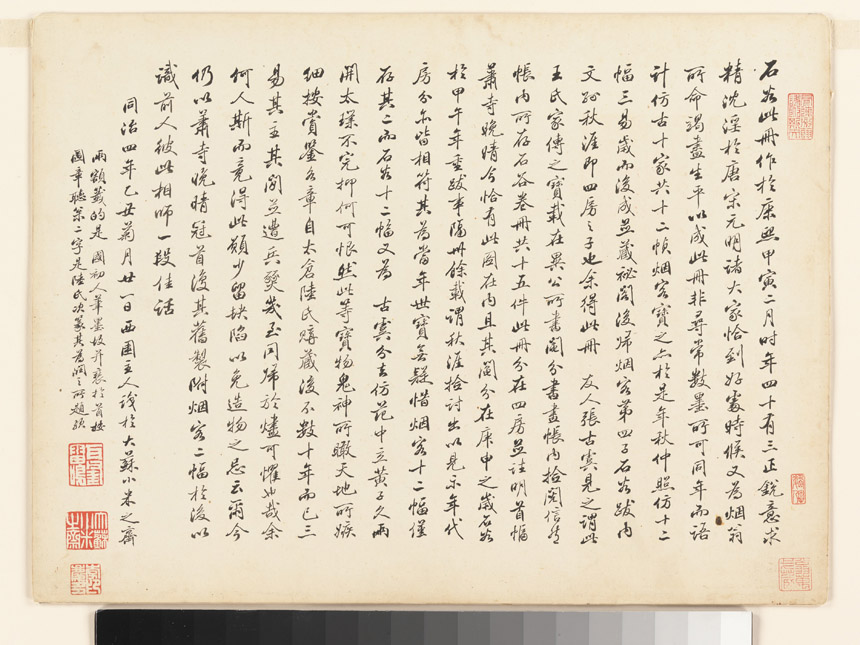 石谷此冊作於康熙甲寅二月时年四十有三正銳意求
精沈淫於唐宋元明諸大家恰到好處時候又為烟翁
所命竭盡生平以成此冊非尋常數墨所可同年而語
計仿古十家共十二幀烟客寶之亦於是年秋仲照仿十二
幅三易歲而後成並藏秘閣後歸烟客第四子石谷跋內
文㳂秋涯即四房之子也余得此冊 友人張古寞見之謂此
王氏家傳之寶載在異公所書鬮分書畫帳內拾閱信然
帳內所存石谷卷冊共十五件此冊分在四房並註明首幅
蕭寺晚晴今恰有此圖在內且其鬮分在庚申之歲石谷
於甲午年重跋事隔卅餘載謂秋涯拾討出以見示年代
房分亦皆相符其為當年世寶無疑惜烟客十二幅僅
存其二而石谷十二幅又為 古寞分去仿范中立黃子久兩
開太璞不完抑何可恨然此等寶物鬼神所瞰天地所嫉
細按賞鑒各章自太倉陸氏轉藏後不數十年而已三
易其主其閒並遭兵燹幾至同歸於燼可懼也哉余
何人斯而竟得此願少留缺陷以免造物之忌云爾今
仍以蕭寺晚晴冠首復其舊製附烟客二幅於後以
識前人彼此相師一段佳話
同治四年乙丑菊月廿一日西圃主人識於大蘇小米之齋
兩額籤的是 國初人筆墨故并裝於首按
圖章聽松二字是陸氏次篆其為潤之所題歟